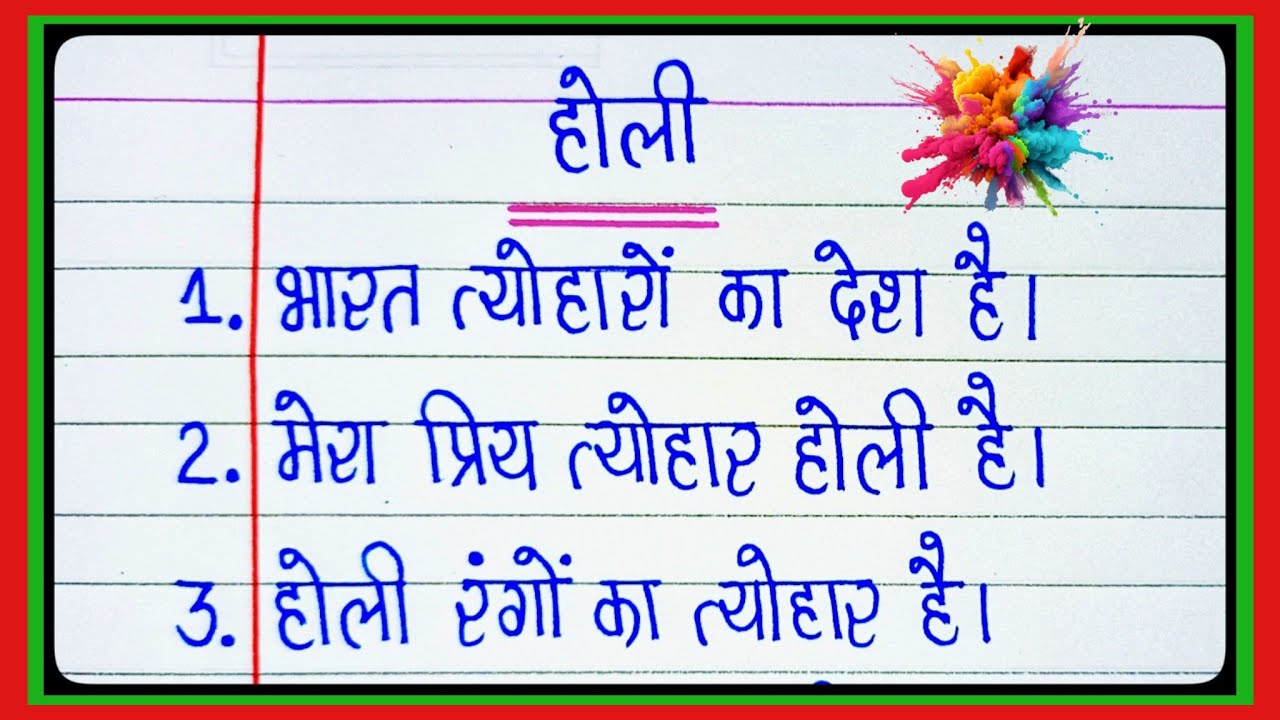 होली
1. भारत त्योहारों का देश है।
2. मेरा प्रिय त्योहार होली है।
3. होली रंगों का त्योहार है।